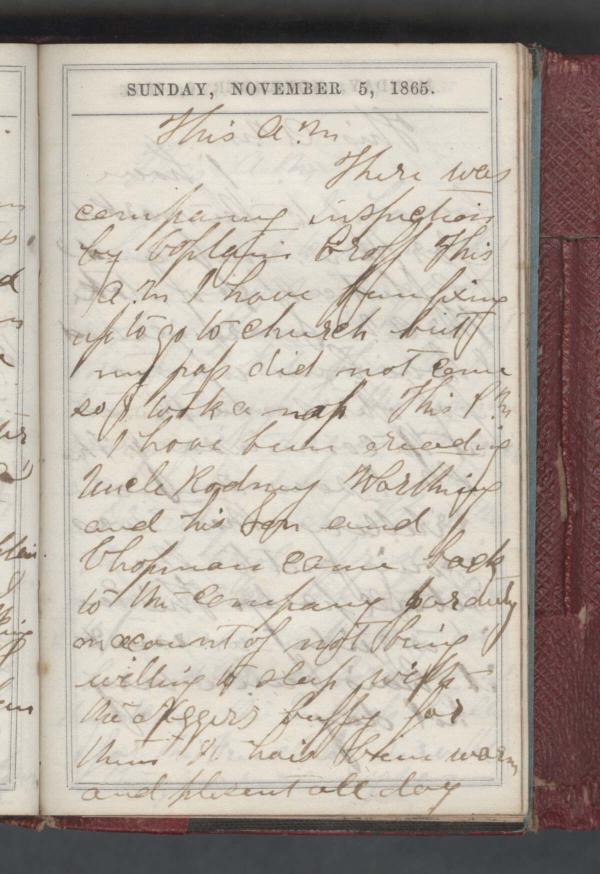 SUNDAY, NOVEMBER 5, 1865.
This A.M
There was
company inspection
by Coptain Croff This
A.M I have been fixing
up to go to church but
my pass did not come
so I took a nap This P.M
I have been reading
Uncle Rodney Worthing
and his son and
Chopman came back
to the company for duty
on account of not being
willing to sleep with
the niggers bully for
them It has been warm
and plesent all day